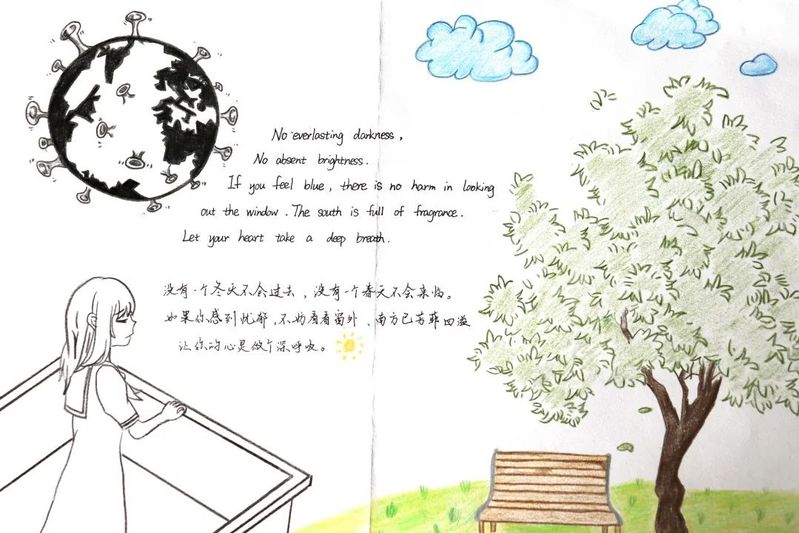 No everlasting darkness,
No absent brightness.
If you feel blue, there is no harm in looking
out the window. The south is full of fragrance.
Let your heart take a deep breath.
没有一个冬天不会过去，没有一个春天不会来临。
如果你感到忧郁，不妨看看窗外、南方已芳菲四溢
让你的心灵做个深呼吸。